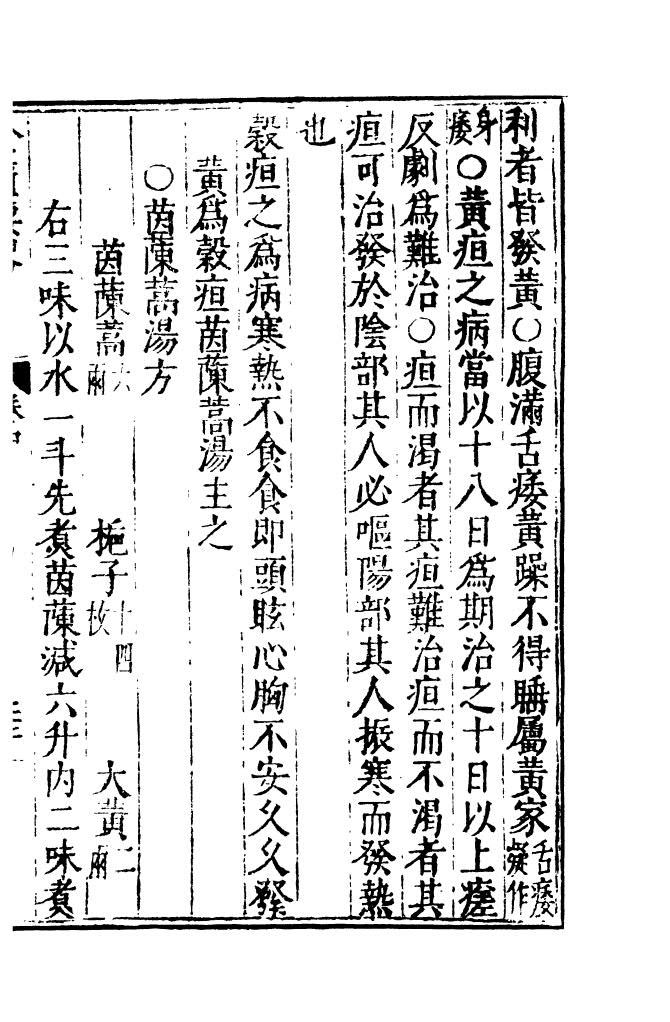 利者皆發黃○腹滿舌痿黃躁不得睡屬黃家舌痿疑作
身痿○黃疸之病當以十八日爲期治之十日以上瘥
反劇爲難治○疸而渴者其疸難治疸而不渴者其
疸可治發於陰部其人必嘔陽部其人振寒而發熱
也
穀疸之爲病寒熱不食食即頭眩心胸不安久久發
黃爲穀疸茵蔯蒿湯主之
○茵蔯蒿湯方
茵蔯蒿六兩 梔子十四枚 大黃二兩
右三味以水一斗先煮茵蔯減六升內二味煮